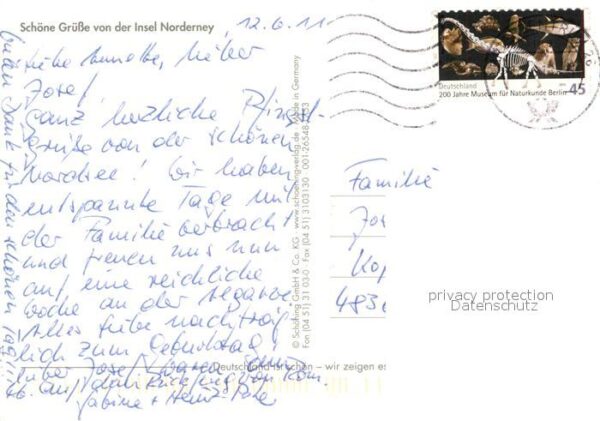 Schöne Grüße von der Insel Norderney
12.6.11
Liebe Annette, lieber
Josef,
ganz herzliche Pfingst-
grüße von der schönen
Nordsee! Wir haben
entspannte Tage mit
der Familie verbracht
und freuen uns nun
auf eine reichliche
Woche an der Algarve
Alles Liebe nachträg-
lich zum Geburtstag,
lieber Josef!
Sabine +
vielen Dank für den schönen
© Schöning GmbH & Co. KG · www.schoening-verlag.de · Made in Germany
Fon (04 51) 31 03-0 · Fax (04 51) 3103130
Deutschland ist schön – wir zeigen es
Deutschland
200 Jahre Museum für Naturkunde Berlin
45
Familie
Jos
Kop
483
privacy protection
Datenschutz